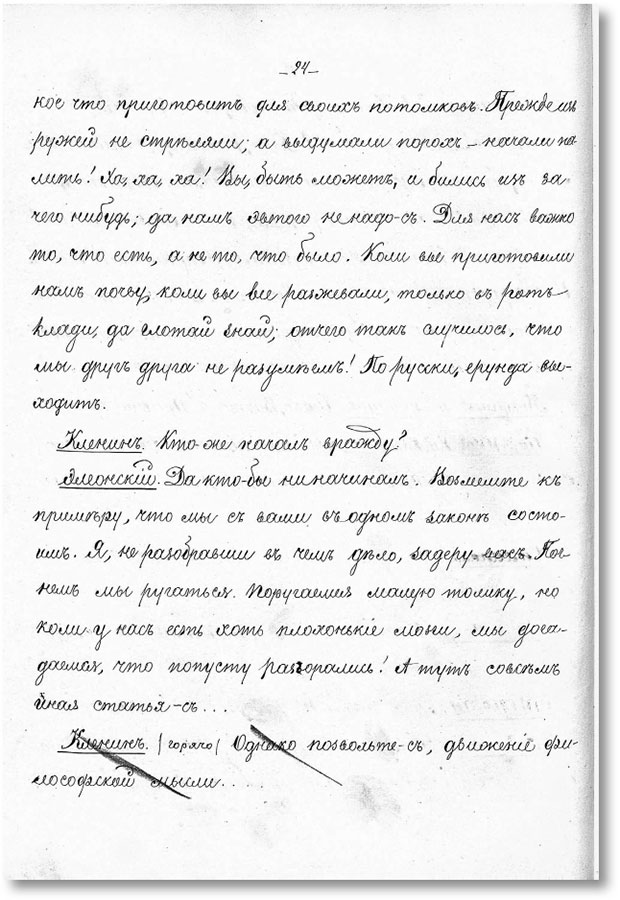 –24–
кое что приготовить для своихъ потомковъ. Прежде изъ
ружей не стрѣляли; а выдумали порохъ – начали па-
лить! Ха, ха, ха! Вы, быть можетъ, и бились изъ за
чего нибудь; да намъ эвтого не надо-съ. Для насъ важно
то, что есть, а не то, что было. Коли вы приготовили
намъ почву, коли вы все разжевали, только въ ротъ
клади, да глотай знай; отчего такъ случилось, что
мы другъ друга не разумѣемъ! По русски, ерунда вы-
ходитъ.
Кленинъ. Кто-же началъ вражду?
Да кто-бы ни начиналъ. Возмемте къ
примѣру, что мы съ вами въ одномъ законѣ состо-
имъ. Я, не разобравши въ чемъ дѣло, задеру васъ. Поч-
немъ мы ругаться. Поругаемся малую толику, но
коли у насъ есть хоть плохонькіе мозги, мы дога-
даемся, что попусту разорались! А тутъ совсѣмъ
иная статья-съ...
Кленинъ. (горячо) Однако позвольте-съ, движеніе фи-
лософской мысли....